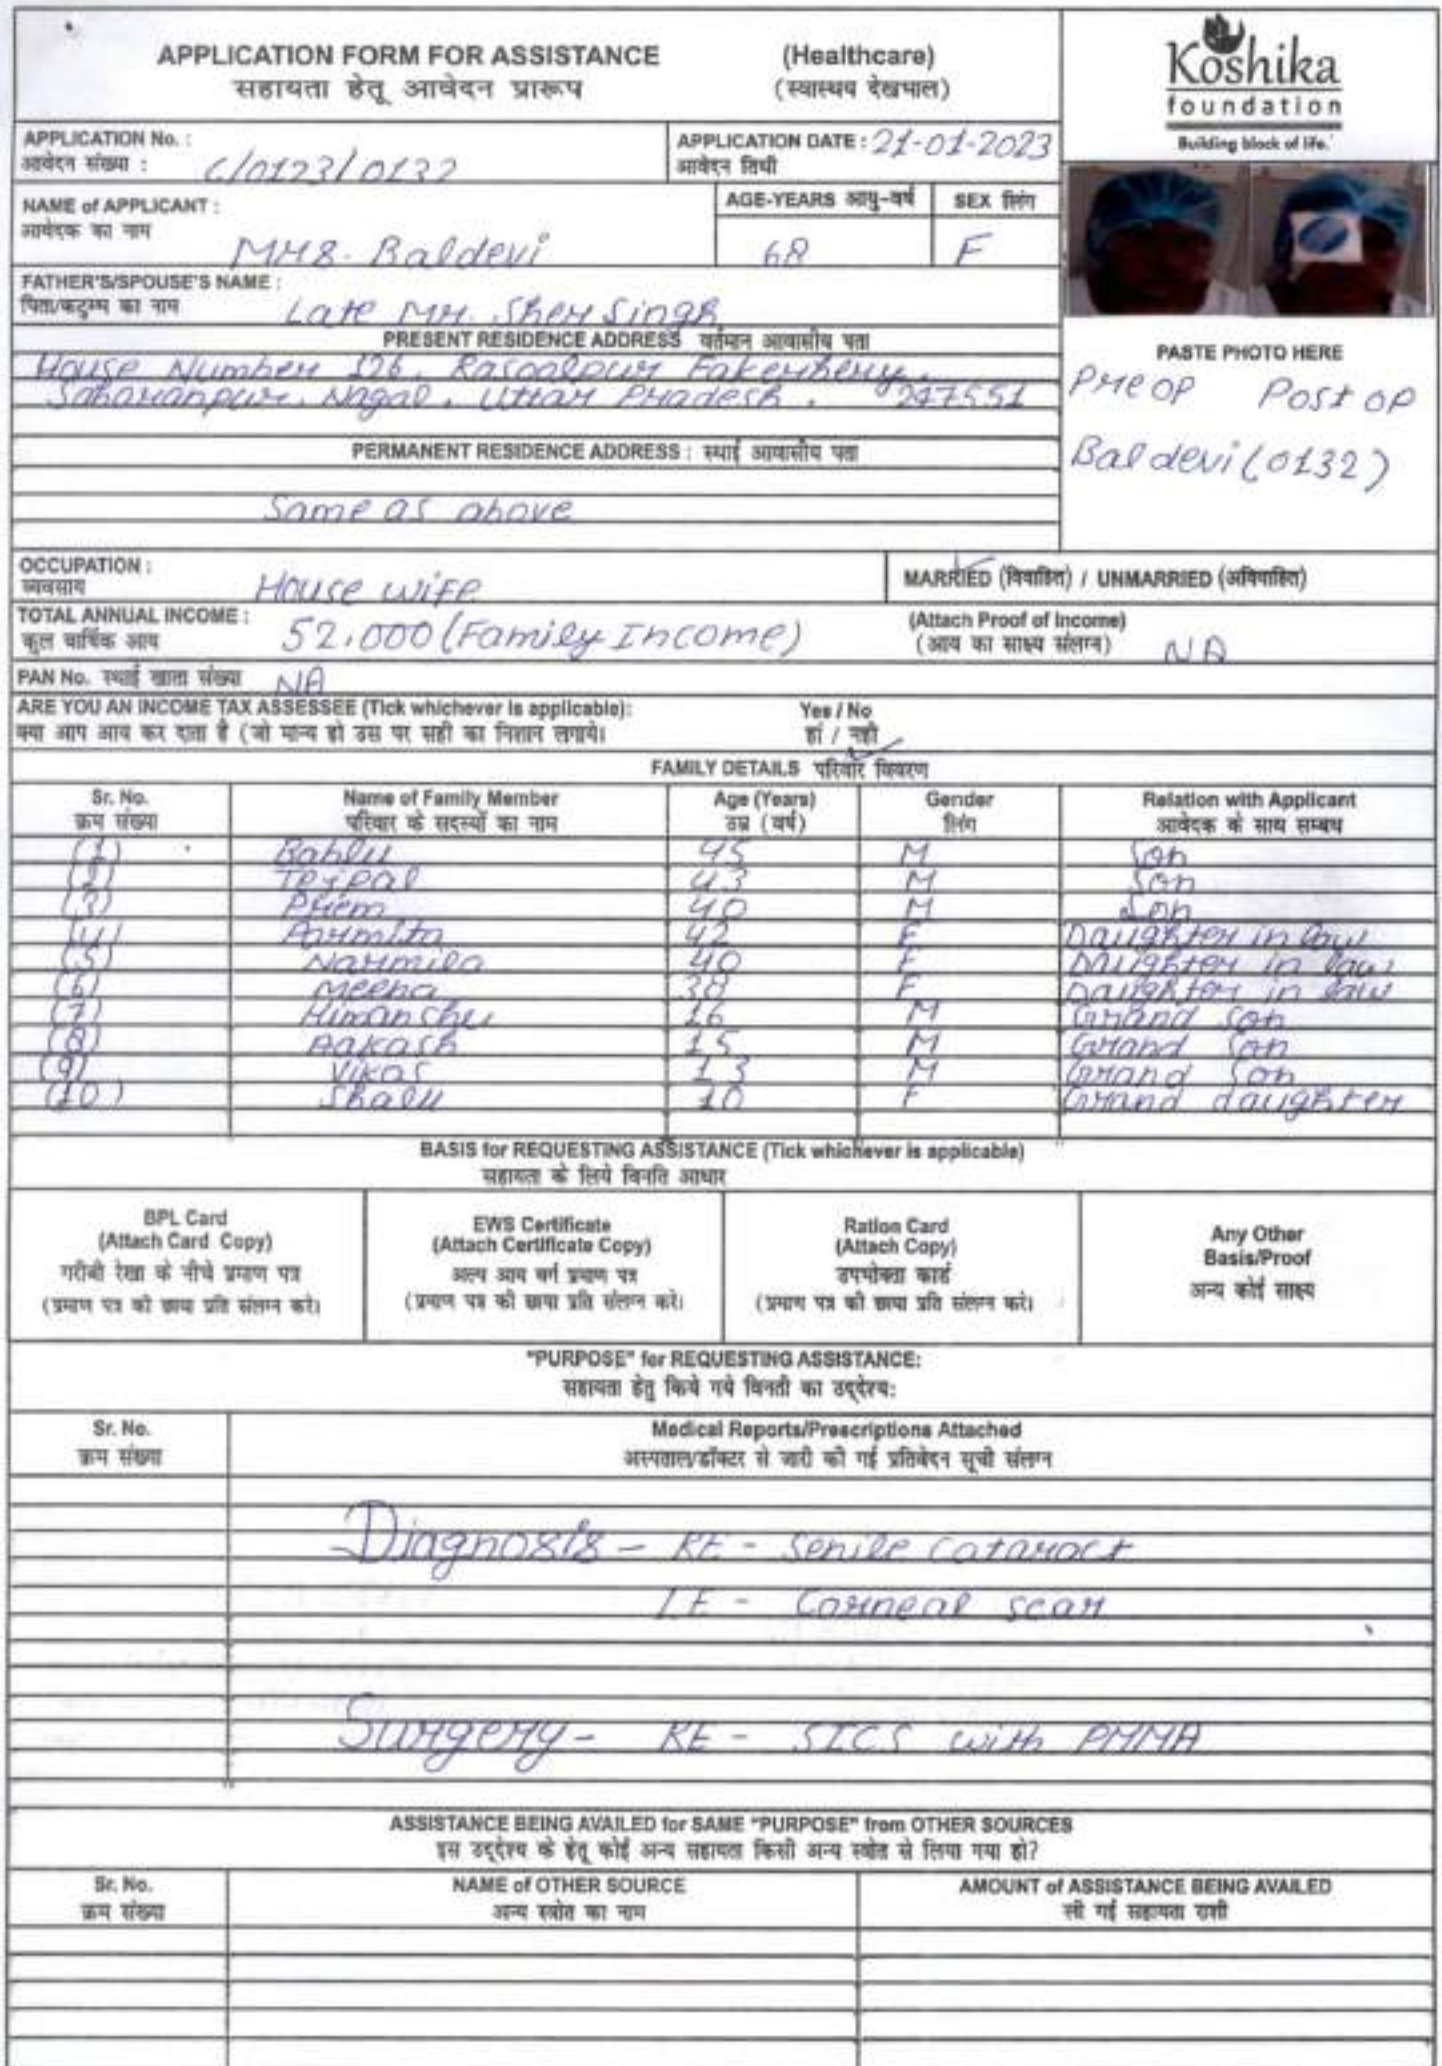 APPLICATION FORM FOR ASSISTANCE (Healthcare)
सहायता हेतू आवेदन प्रारूप (स्वास्थय देखभाल)
Koshika
foundation
Building block of life.
APPLICATION No. :
आवेदन संख्या : C/0123/0132
APPLICATION DATE : 21-01-2023
आवेदन तिथी
NAME of APPLICANT :
आवेदक का नाम Mrs. Baldevi
AGE-YEARS आयु-वर्ष 68
SEX लिंग F
FATHER'S/SPOUSE'S NAME :
पिता/कटुम्म का नाम Late Mr. Sher Singh
PRESENT RESIDENCE ADDRESS वर्तमान आवासीय पता
House Number 126, Rasoolpur Fakerhery,
Saharanpur, Nagal, Uttar Pradesh, 247551
PASTE PHOTO HERE
Pre op Post op
Baldevi (0132)
PERMANENT RESIDENCE ADDRESS : स्थाई आवासीय पता
Same as above
OCCUPATION :
व्यवसाय House wife
MARRIED (विवाहित) / UNMARRIED (अविवाहित)
TOTAL ANNUAL INCOME :
कुल वार्षिक आय 52,000 (Family Income)
(Attach Proof of Income)
(आय का साक्ष्य संलग्न) NA
PAN No. स्थाई खाता संख्या NA
ARE YOU AN INCOME TAX ASSESSEE (Tick whichever is applicable): Yes / No
क्या आप आय कर दाता है (जो मान्य हो उस पर सही का निशान लगाये। हां / नही
FAMILY DETAILS परिवार विवरण
Sr. No. Name of Family Member Age (Years) Gender Relation with Applicant
क्रम संख्या परिवार के सदस्यों का नाम उम्र (वर्ष) लिंग आवेदक के साथ सम्बध
(1) Bablu 45 M Son
(2) Tejpal 43 M Son
(3) Prem 40 M Son
(4) Parmita 42 F Daughter in law
(5) Narmila 40 F Daughter in law
(6) Meena 38 F Daughter in law
(7) Himanshu 16 M Grand son
(8) Aakash 15 M Grand Son
(9) Vikas 13 M Grand Son
(10) Shalu 10 F Grand daughter
BASIS for REQUESTING ASSISTANCE (Tick whichever is applicable)
सहायता के लिये विनति आधार
BPL Card
(Attach Card Copy)
गरीबी रेखा के नीचे प्रमाण पत्र
(प्रमाण पत्र की छाया प्रति संलग्न करे।
EWS Certificate
(Attach Certificate Copy)
अल्प आय वर्ग प्रमाण पत्र
(प्रमाण पत्र की छाया प्रति संलग्न करे।
Ration Card
(Attach Copy)
उपभोक्ता कार्ड
(प्रमाण पत्र की छाया प्रति संलग्न करे।
Any Other
Basis/Proof
अन्य कोई साक्ष्य
"PURPOSE" for REQUESTING ASSISTANCE:
सहायता हेतु किये गये विनती का उद्देश्य:
Sr. No. Medical Reports/Prescriptions Attached
क्रम संख्या अस्पताल/डॉक्टर से जारी की गई प्रतिवेदन सूची संलग्न
Diagnosis - RE - Senile Cataract
LE - Corneal scar
Surgery - RE - SICS with PMMA
ASSISTANCE BEING AVAILED for SAME "PURPOSE" from OTHER SOURCES
इस उद्देश्य के हेतू कोई अन्य सहायता किसी अन्य स्त्रोत से लिया गया हो?
Sr. No. NAME of OTHER SOURCE AMOUNT of ASSISTANCE BEING AVAILED
क्रम संख्या अन्य स्त्रोत का नाम ली गई सहायता राशी